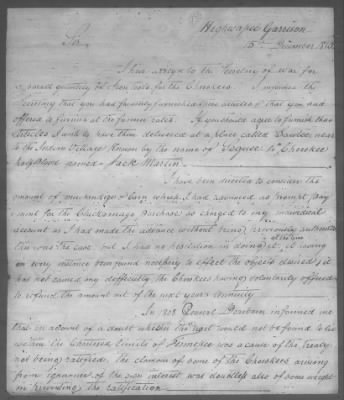 Highwassee Garrison
15th December 1810
Sir,
I have assay'd to the Secretary of war for
a small quantity of Iron tools for the Cherokees. I informed the
Secretary that you has formerly furnished some articles & that you had
offered to furnish at the former rates. If you should agree to furnish the
Articles I wish to have them delivered at a place called near
to the Indian Village Known by the name of to a Cherokee
half blood named Jack Martin
I have been directed to consider the
amount of and Corn which I had advanced as prompt pay
ment for the Chickamaga Purchase as charged to my individual
account as I had made the advance without being previously authorised
this was the case but I had no hesitation in doing it at the time, it having
on every instance been found necessary to effect the objects desired, it
has not caused any difficulty the Cherokees having voluntarily offered
to refund the amount out of the next years annuity
In 1808 General Dearborn informed me
that on account of a doubt whether the tract would not be found to lie
within the Chartered limits of Tennessee was a cause of the treaty
not being ratified. The clamour of some of the Cherokees arising
from ignorance of their own interest was doubtless also of some weight
in preventing the ratification